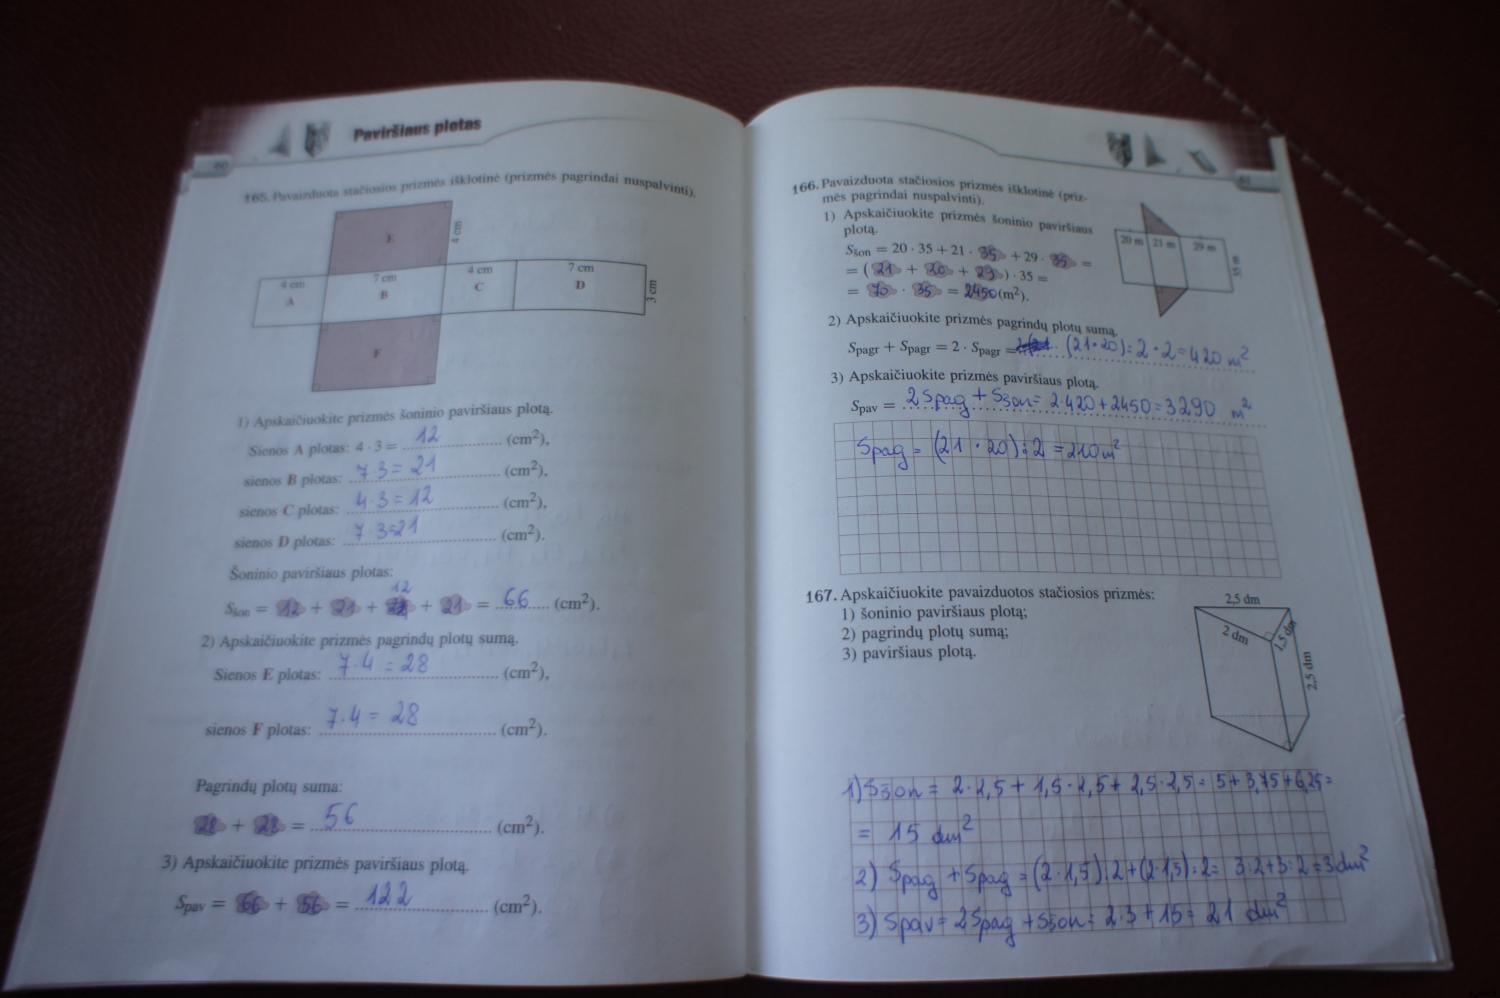 60
Paviršiaus plotas
165. Pavaizduota stačiosios prizmės išklotinė (prizmės pagrindai nuspalvinti).
E
4 cm
4 cm
7 cm
4 cm
7 cm
A
B
C
D
3 cm
F
1) Apskaičiuokite prizmės šoninio paviršiaus plotą.
Sienos A plotas: 4 · 3 = 12 (cm²),
sienos B plotas: 7·3 = 21 (cm²),
sienos C plotas: 4·3 = 12 (cm²),
sienos D plotas: 7·3=21 (cm²).
Šoninio paviršiaus plotas:
12
Sšon = 12 + 21 + + 21 = 66 (cm²).
2) Apskaičiuokite prizmės pagrindų plotų sumą.
Sienos E plotas: 7·4 = 28 (cm²),
sienos F plotas: 7·4 = 28 (cm²).
Pagrindų plotų suma:
28 + 28 = 56 (cm²).
3) Apskaičiuokite prizmės paviršiaus plotą.
Spav = 66 + 56 = 122 (cm²).
61
166. Pavaizduota stačiosios prizmės išklotinė (priz-
mės pagrindai nuspalvinti).
1) Apskaičiuokite prizmės šoninio paviršiaus
plotą.
Sšon = 20 · 35 + 21 · 35 + 29 · 35 =
= ( 21 + 20 + 29 ) · 35 =
= 70 · 35 = 2450 (m²).
20 m
21 m
29 m
35 m
2) Apskaičiuokite prizmės pagrindų plotų sumą.
Spagr + Spagr = 2 · Spagr = (21·20):2·2=420 m²
3) Apskaičiuokite prizmės paviršiaus plotą.
Spav = 2Spag + Sšon= 2·420+2450=3290 m²
Spag = (21·20):2 =210m²
167. Apskaičiuokite pavaizduotos stačiosios prizmės:
1) šoninio paviršiaus plotą;
2) pagrindų plotų sumą;
3) paviršiaus plotą.
2,5 dm
2 dm
1,5 dm
2,5 dm
1) Sšon = 2·2,5 + 1,5·2,5 + 2,5·2,5 = 5+3,75+6,25=
= 15 dm²
2) Spag + Spag = (2·1,5):2+(2·1,5):2= 3:2+3:2=3dm²
3) Spav = 2Spag + Sšon = 2·3+15= 21 dm²